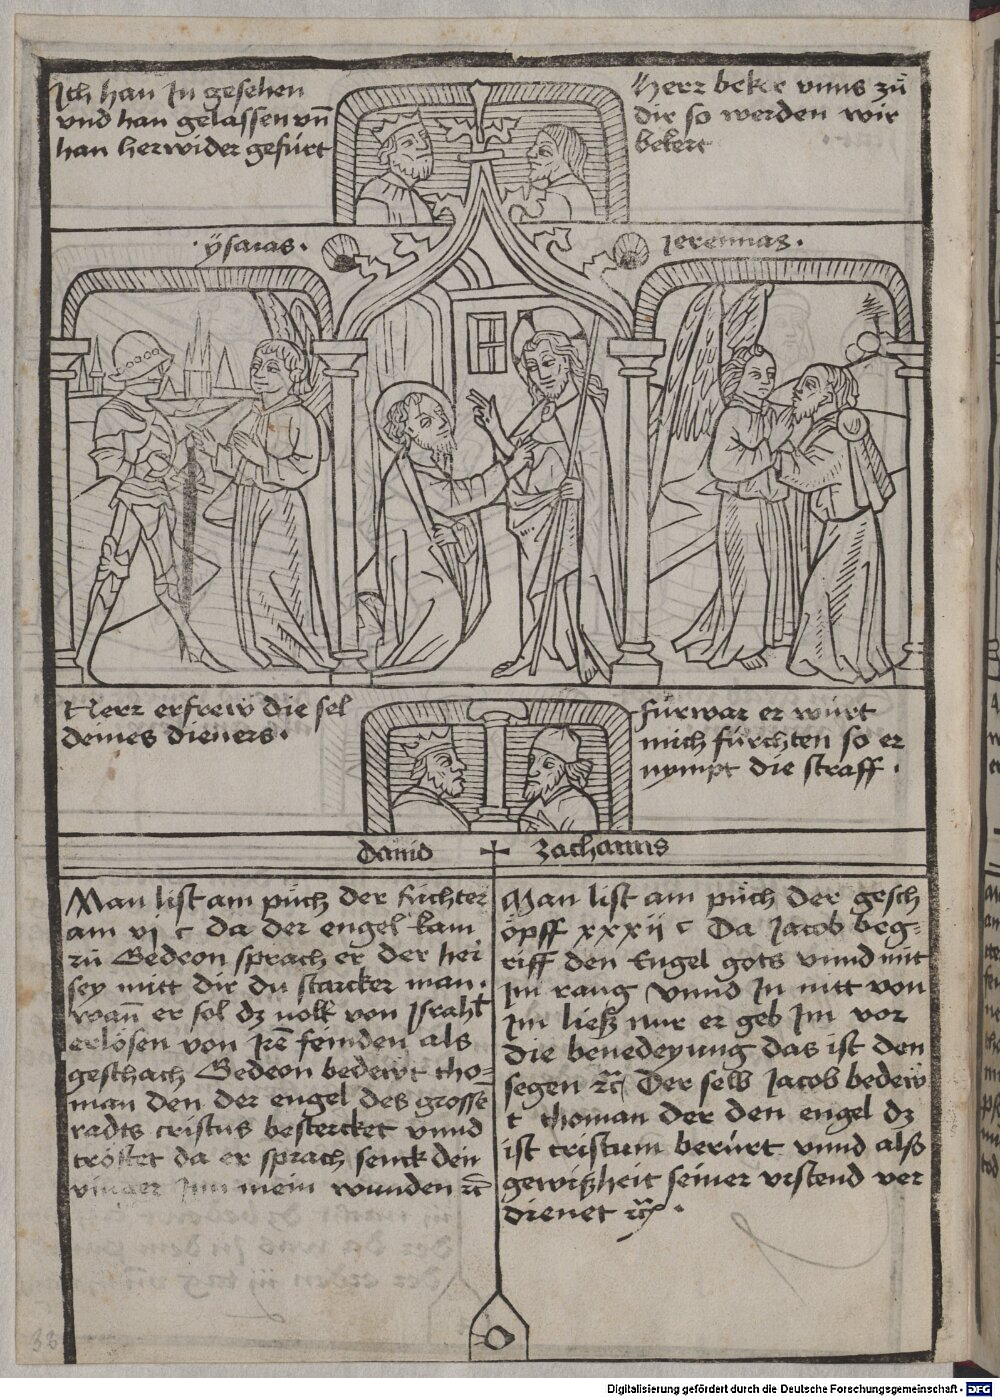 Ich han In gesehen
vnd han gelassen vñ
han herwider gefürt
Herr beker vnns zů
dir so werden wir
bekert
ÿsaias.
Jeremias.
Herr erfrew die sel
deines dieners.
fürwar er würt
mich fürchten so er
nympt die straff.
dauid
zacharias
Man list am půch der richter
am vj c da der engel kam
zů Gedeon sprach er der her
sey mitt dir du starcker man.
wañ er sol dz uolk von Israhl
erlösen von Irē feinden als
geschach Gedeon bedewt tho=
man den der engel des grosse
radts cristus bestercket vnnd
tröstet da er sprach senck den
vinger Jnn mein wunden ꝛc
Man list am půch der gesch
öpff xxxij c Da Jacob beg=
riff den Engel gots vnnd mit
Im rang vnnd In nitt von
Im ließ nur er geb Im vor
die benedeyung das ist den
segen ꝛc Der selb Jacob bedew
t thoman der den engel dz
ist cristum berürt vnnd also
gewißheit seiner vrstend ver
dienet ꝛc.
38
Digitalisierung gefördert durch die Deutsche Forschungsgemeinschaft - DFG